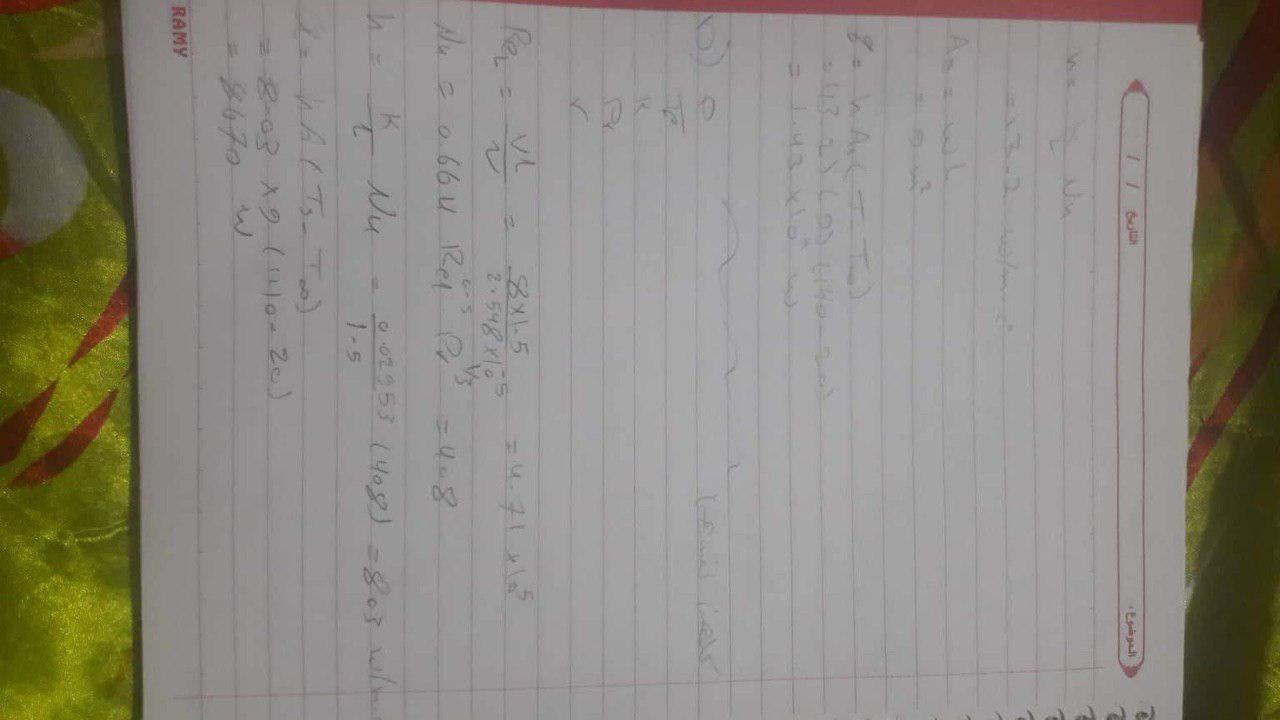 التاريخ / / الموضوع:
h = Nu
A = wL
= 9 m²
q = hA(T - T∞)
= 43.2) (9) (140 - 20)
= 1.43 × 10⁴ w
b)
K
Pr
ReL = VL/ν = 8×1.5/2.548×10⁻⁵ = 4.71 × 10⁵
Nu = 0.664 ReL^0.5 Pr^1/3 = 408
h = K/L Nu = 0.02953/1.5 (408) = 803 w/m
= hA(Ts - T∞)
= 8.03 × 9 (140 - 20)
= 8670 w
RAMY